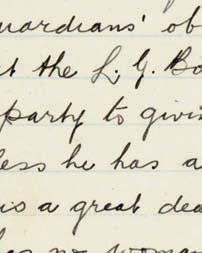 guardians' ob
t the L. G. Bo
party to givi
less he has a
is a great dea
has no woman